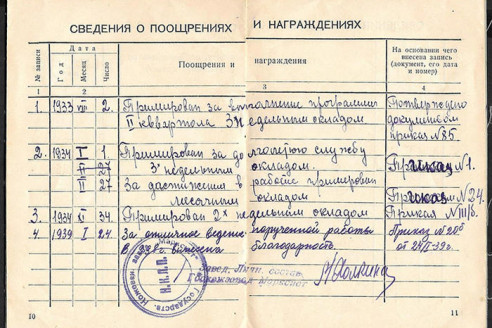 СВЕДЕНИЯ О ПООЩРЕНИЯХ И НАГРАЖДЕНИЯХ
№ записи
Дата
Год
Месяц
Число
Поощрения и награждения
На основании чего внесена запись (документ, его дата и номер)
1 2 3 4
1. 1933 VII 2. Примирован за выполнение программы Потверждено
II квввартола 3х недельным окладом. документом
приказ №85.
2. 1934 I 1 Примирован за долголетюю службу
3х недельным окладом. Приказ №1.
II 27 За достижения в работе примирован
месячным окладом Приказ №24.
3. 1934 34. Примирован 2х недельным окладом Приказ №III/6.
4. 1939 I 24. За отличное ведение порученной работы Приказ №205
В 38г. вынесена благодарность. от 24/I-39г.
Н.К.П.П.
Завед. Личн. состав.
10
11